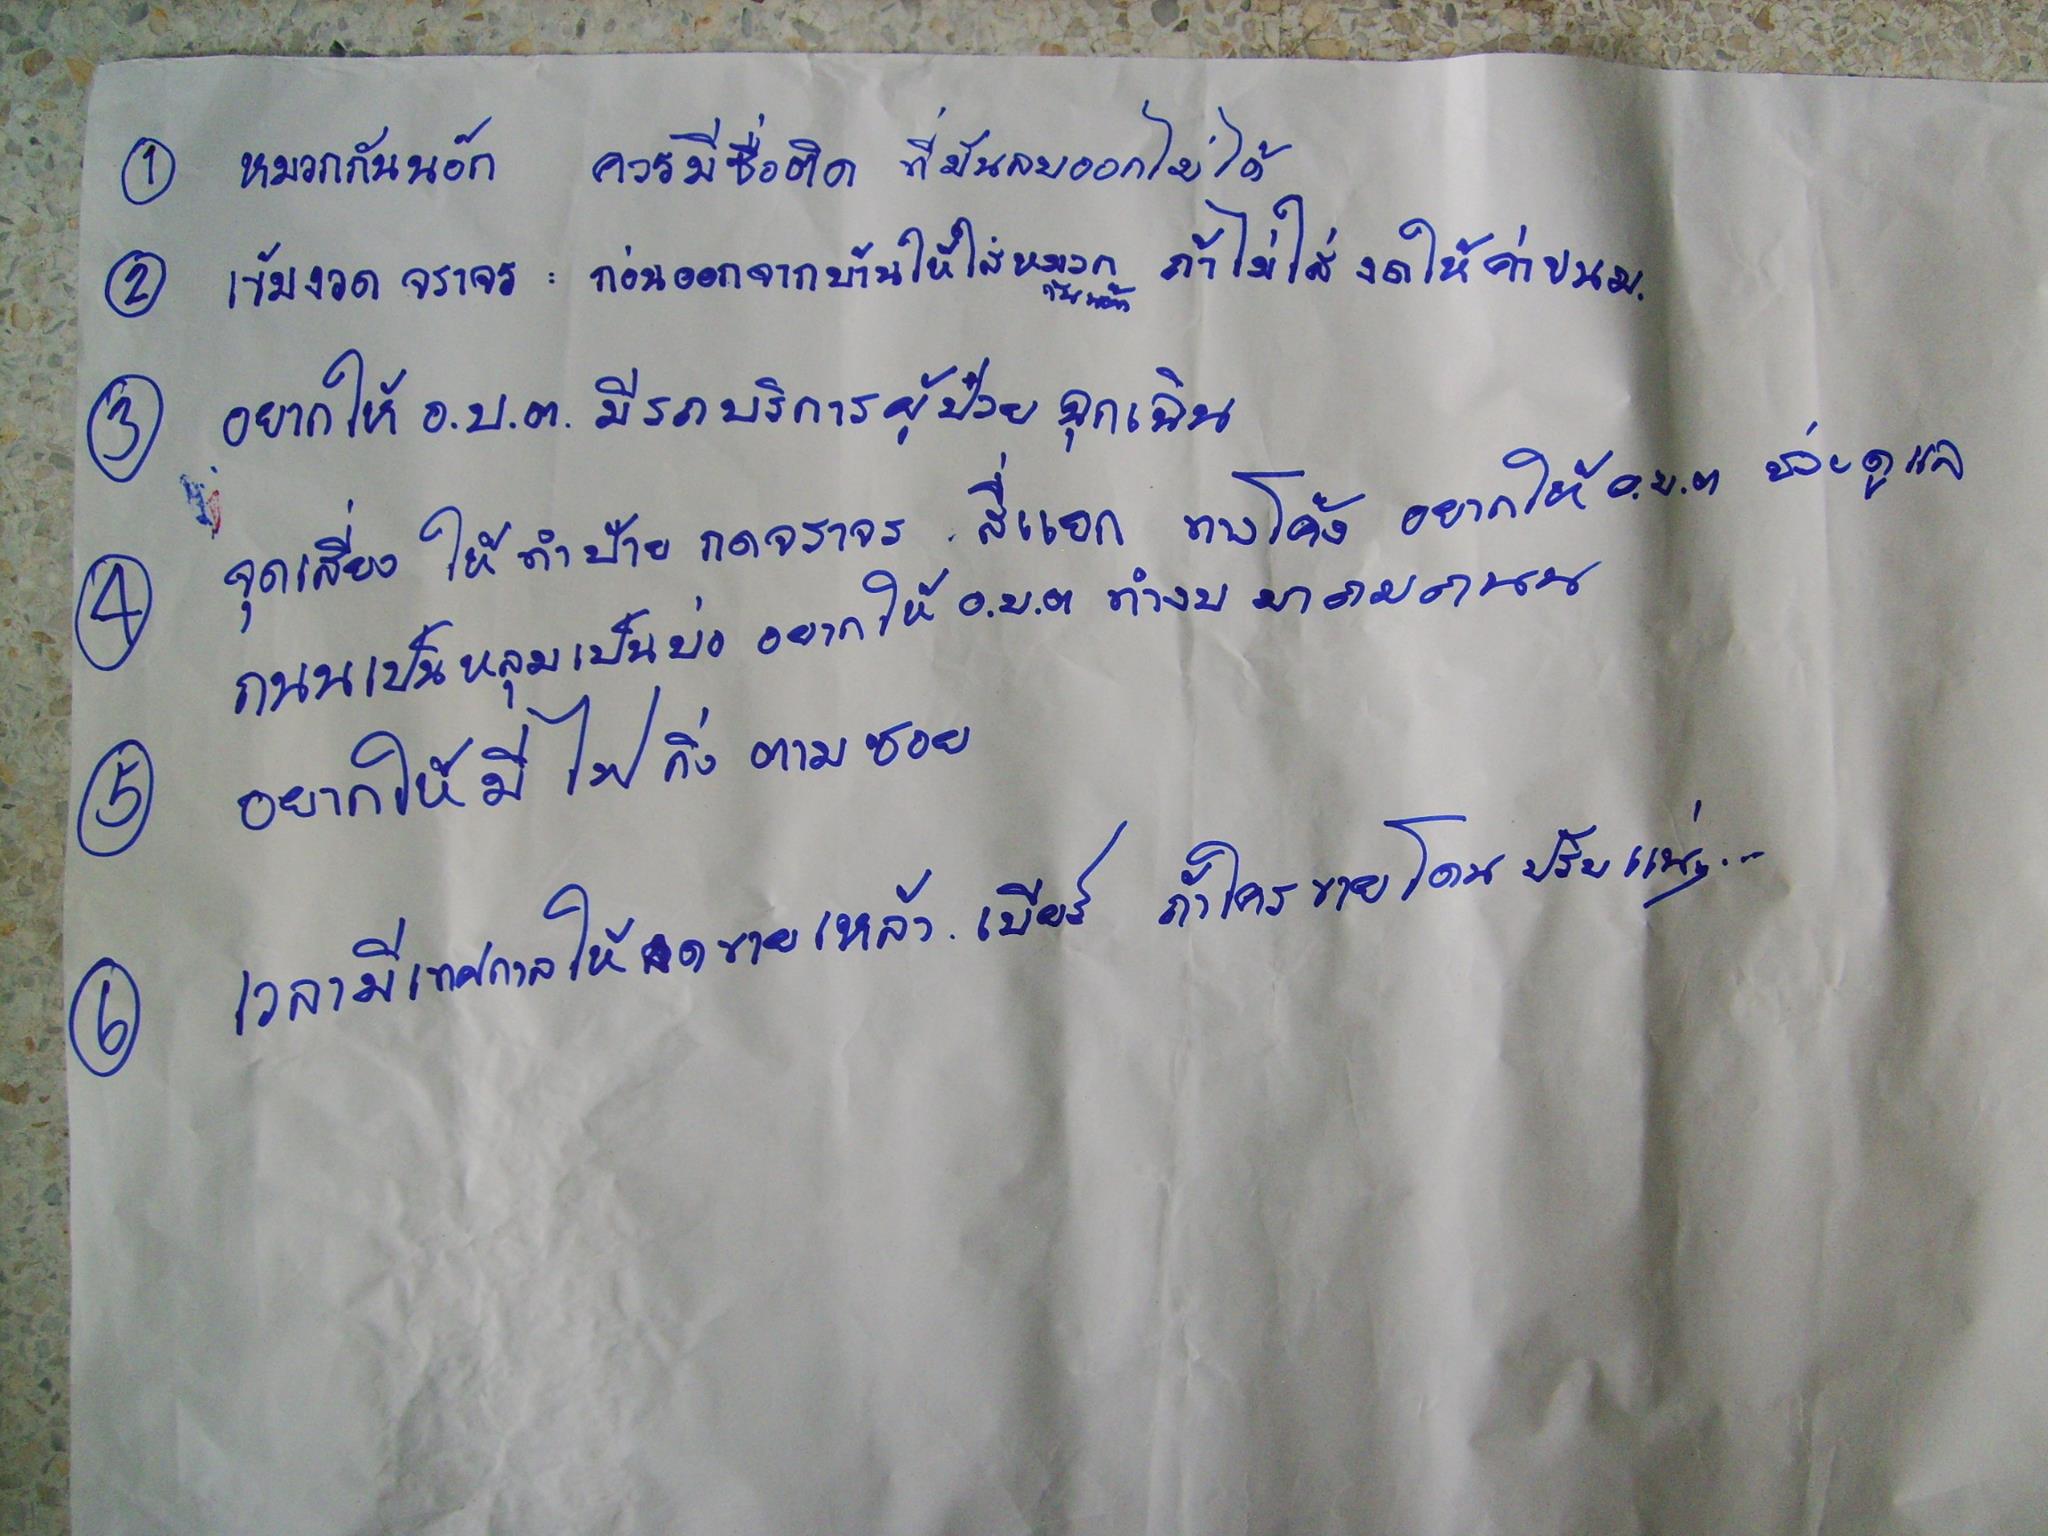 ① หมวกกันนอ๊ก ควรมีชื่อติด ที่มันลบออกไม่ได้
② เข้มงวด จราจร : ก่อนออกจากบ้านให้ใส่หมวก ถ้าไม่ใส่ งดให้ค่าขนม.
กันนอ๊ก
③ อยากให้ อ.บ.ต. มีรถบริการผู้ป่วย ฉุกเฉิน
④ จุดเสี่ยง ให้ทำป้าย กดจราจร . สี่แยก ทางโค้ง อยากให้ อ.บ.ต ช่วยดูแล
ถนนเป็นหลุมเป็นบ่อ อยากให้ อ.บ.ต ทำงบ มาถมถนน
⑤ อยากให้มี ไฟ กิ่ง ตามซอย
⑥ เวลามีเทศกาลให้ งดขายเหล้า . เบียร์ ถ้าใครขายโดนปรับแน่ๆ...